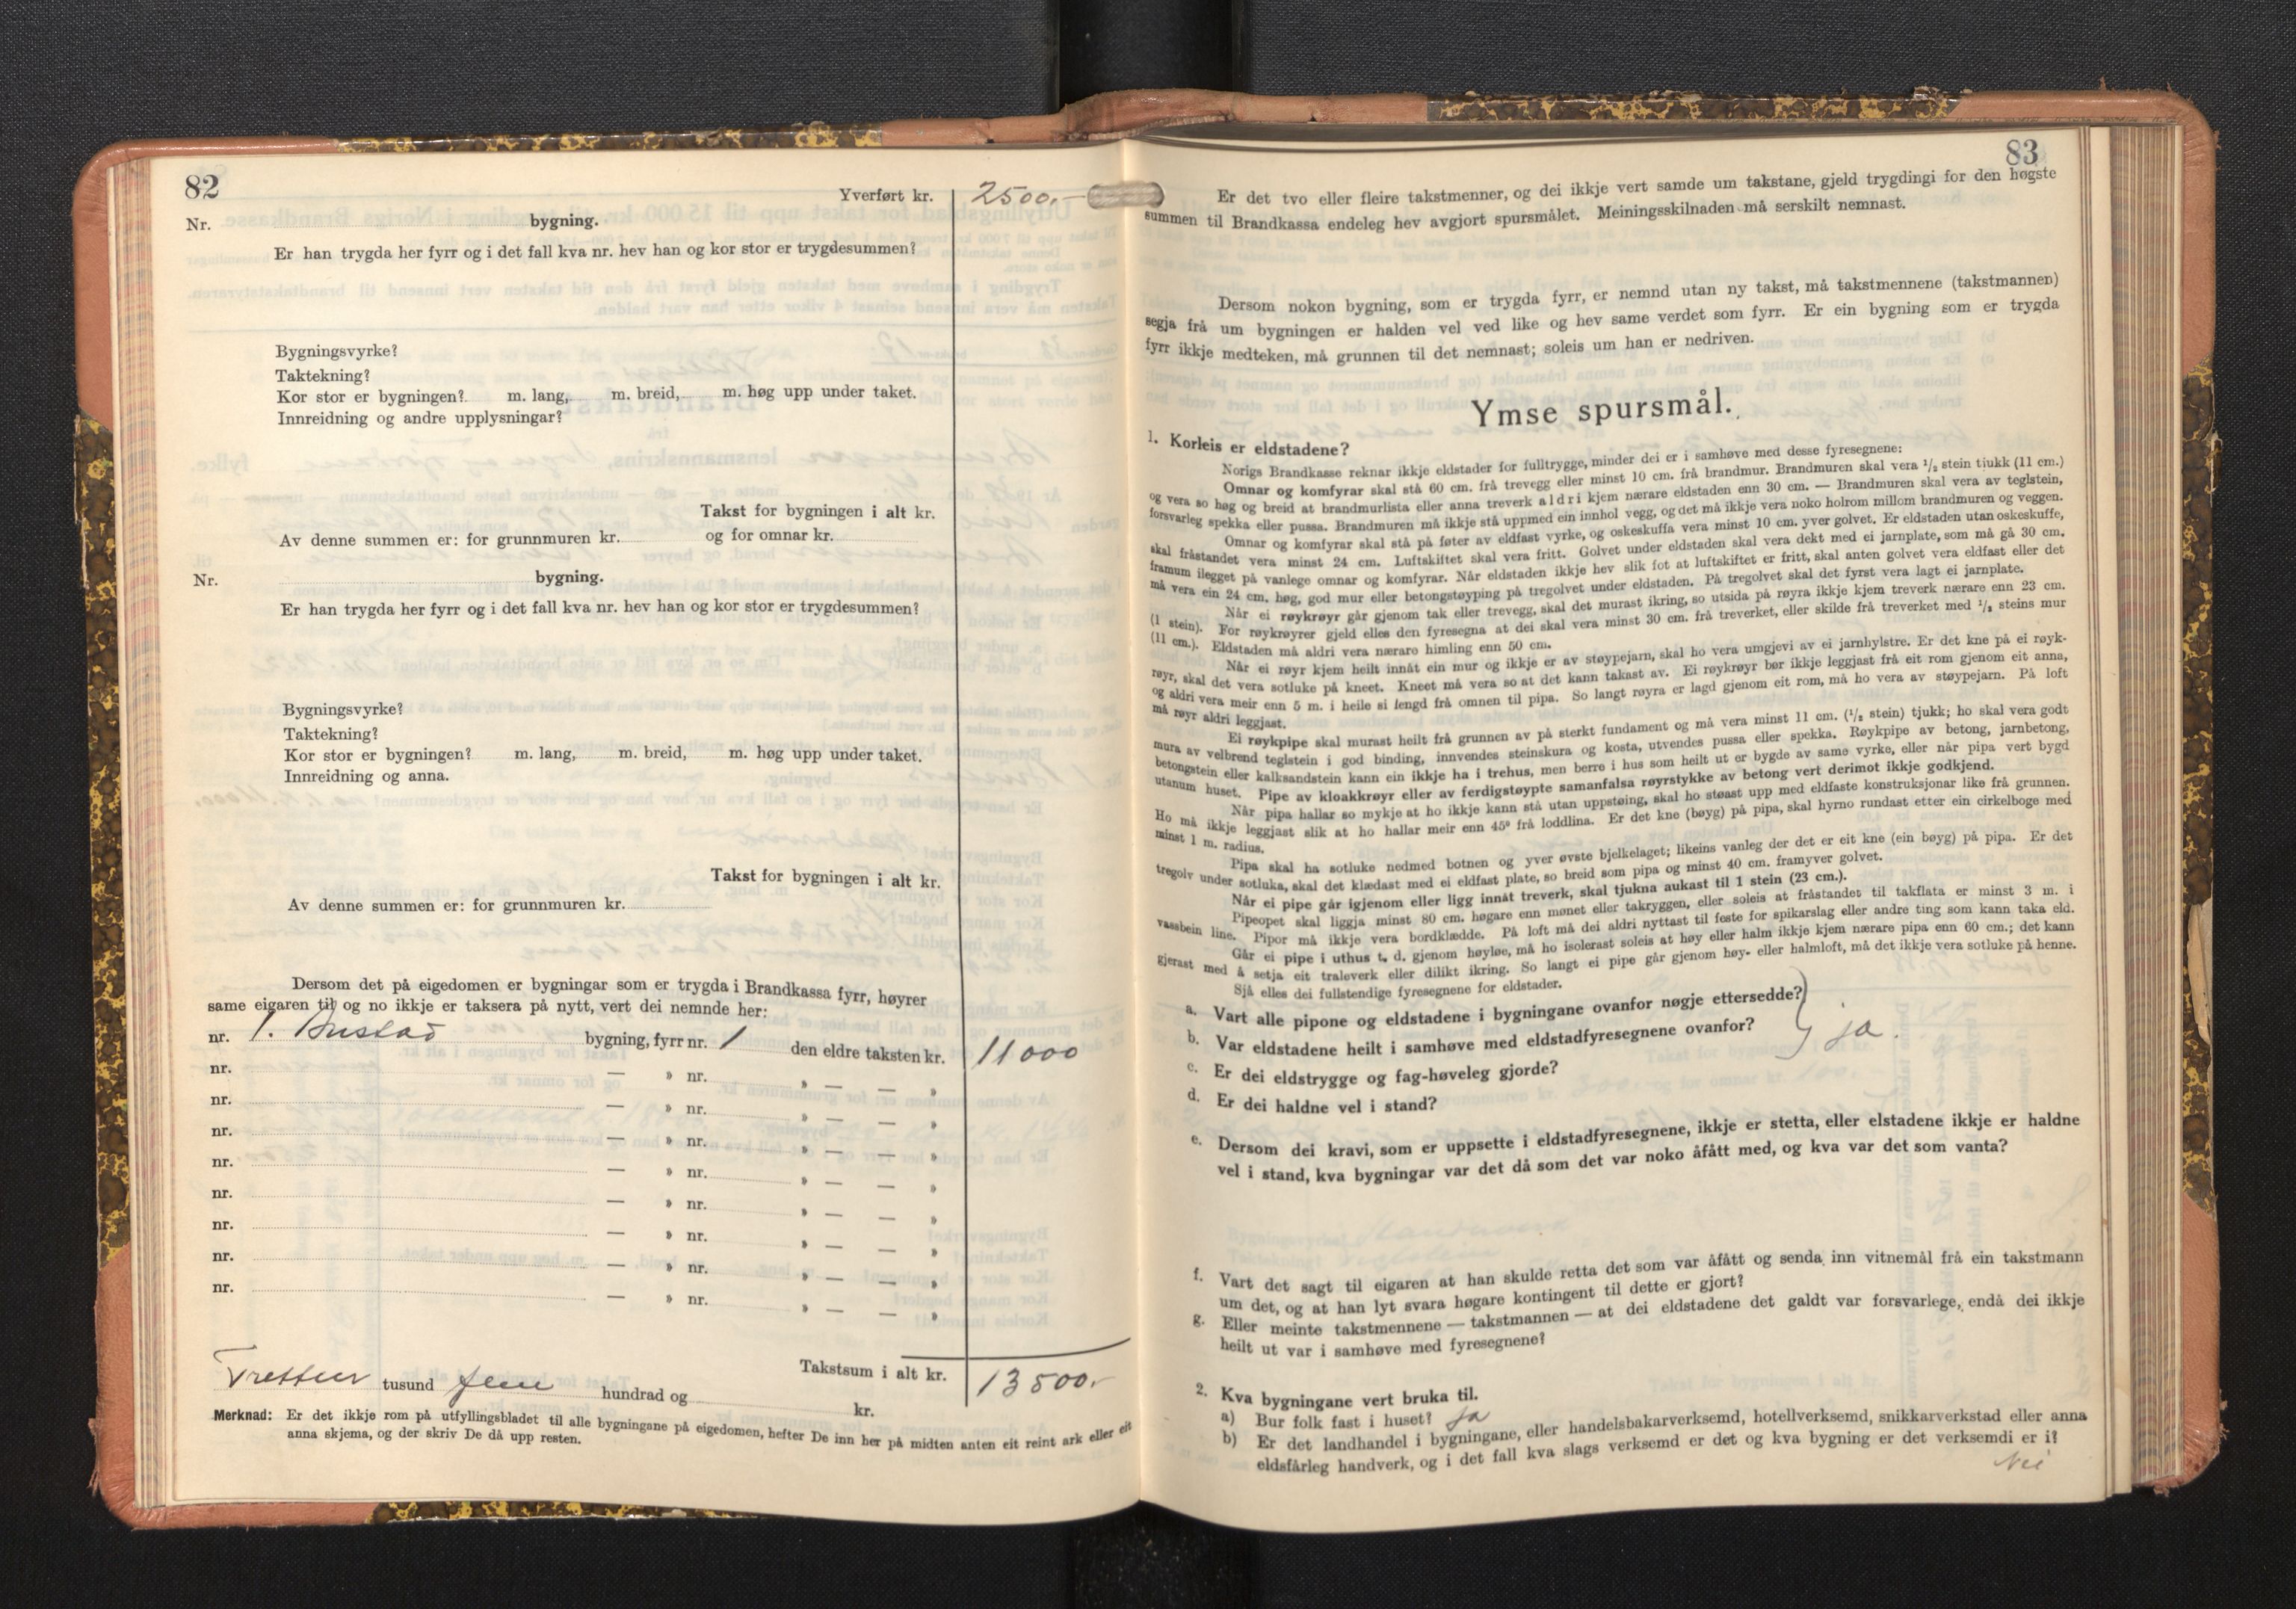 82
Yverført kr. 2500.-
Nr. bygning.
Er han trygda her fyrr og i det fall kva nr. hev han og kor stor er trygdesummen?
Bygningsvyrke?
Taktekning?
Kor stor er bygningen? m. lang, m. breid, m. høg upp under taket.
Innreidning og andre upplysningar?
Takst for bygningen i alt kr.
Av denne summen er: for grunnmuren kr. og for omnar kr.
Nr. bygning.
Er han trygda her fyrr og i det fall kva nr. hev han og kor stor er trygdesummen?
Bygningsvyrke?
Taktekning?
Kor stor er bygningen? m. lang, m. breid, m. høg upp under taket.
Innreidning og anna.
Takst for bygningen i alt kr.
Av denne summen er: for grunnmuren kr.
Dersom det på eigedomen er bygningar som er trygda i Brandkassa fyrr, høyrer
same eigaren til og no ikkje er taksera på nytt, vert dei nemnde her:
nr. 1. Bustad bygning, fyrr nr. 1 den eldre taksten kr. 11000
nr. — » nr. » — — »
nr. — » nr. » — — »
nr. — » nr. » — — »
nr. — » nr. » — — »
nr. — » nr. » — — »
nr. — » nr. » — — »
nr. — » nr. » — — »
nr. — » nr. » — — »
Takstsum i alt kr. 13500.-
Tretten tusund fem hundrad og kr.
Merknad: Er det ikkje rom på utfyllingsbladet til alle bygningane på eigedomen, hefter De inn her på midten anten eit reint ark eller eit
anna skjema, og der skriv De då upp resten.
83
Er det tvo eller fleire takstmenner, og dei ikkje vert samde um takstane, gjeld trygdingi for den høgste
summen til Brandkassa endeleg hev avgjort spursmålet. Meiningsskilnaden må serskilt nemnast.
Dersom nokon bygning, som er trygda fyrr, er nemnd utan ny takst, må takstmennene (takstmannen)
segja frå um bygningen er halden vel ved like og hev same verdet som fyrr. Er ein bygning som er trygda
fyrr ikkje medteken, må grunnen til det nemnast; soleis um han er nedriven.
Ymse spursmål.
1. Korleis er eldstadene?
Norigs Brandkasse reknar ikkje eldstader for fulltrygge, minder dei er i samhøve med desse fyresegnene:
Omnar og komfyrar skal stå 60 cm. frå trevegg eller minst 10 cm. frå brandmur. Brandmuren skal vera ½ stein tjukk (11 cm.)
og vera so høg og breid at brandmurlista eller anna treverk aldri kjem nærare eldstaden enn 30 cm. — Brandmuren skal vera av teglstein,
forsvarleg spekka eller pussa. Brandmuren må ikkje stå uppmed ein innhol vegg, og det må ikkje vera noko holrom millom brandmuren og veggen.
Omnar og komfyrar skal stå på føter av eldfast vyrke, og oskeskuffa vera minst 10 cm. yver golvet. Er eldstaden utan oskeskuffe,
skal fråstandet vera minst 24 cm. Luftskiftet skal vera fritt. Golvet under eldstaden skal vera dekt med ei jarnplate, som må gå 30 cm.
framum ilegget på vanlege omnar og komfyrar. Når eldstaden ikkje hev slik fot at luftskiftet er fritt, skal anten golvet vera eldfast eller det
må vera ein 24 cm. høg, god mur eller betongstøyping på tregolvet under eldstaden. På tregolvet skal det fyrst vera lagt ei jarnplate.
Når ei røykrøyr går gjenom tak eller trevegg, skal det murast ikring, so utsida på røyra ikkje kjem treverk nærare enn 23 cm.
(1 stein). For røykrøyrer gjeld elles den fyresegna at dei skal vera minst 30 cm. frå treverket, eller skilde frå treverket med ½ steins mur
(11 cm.). Eldstaden må aldri vera nærare himling enn 50 cm.
Når ei røyr kjem heilt innåt ein mur og ikkje er av støypejarn, skal ho vera umgjevi av ei jarnhylstre. Er det kne på ei røyk-
røyr, skal det vera sotluke på kneet. Kneet må vera so at det kann takast av. Ei røykrøyr bør ikkje leggjast frå eit rom gjenom eit anna,
og aldri vera meir enn 5 m. i heile si lengd frå omnen til pipa. So langt røyra er lagd gjenom eit rom, må ho vera av støypejarn. På loft
må røyr aldri leggjast.
Ei røykpipe skal murast heilt frå grunnen av på sterkt fundament og må vera minst 11 cm. (½ stein) tjukk; ho skal vera godt
mura av velbrend teglstein i god binding, innvendes steinskura og kosta, utvendes pussa eller spekka. Røykpipe av betong, jarnbetong,
betongstein eller kalksandstein kann ein ikkje ha i trehus, men berre i hus som heilt ut er bygde av same vyrke, eller når pipa vert bygd
utanum huset. Pipe av kloakkrøyr eller av ferdigstøypte samanfalsa røyrstykke av betong vert derimot ikkje godkjend.
Når pipa hallar so mykje at ho ikkje kann stå utan uppstøing, skal ho støast upp med eldfaste konstruksjonar like frå grunnen.
Ho må ikkje leggjast slik at ho hallar meir enn 45° frå loddlina. Er det kne (bøyg) på pipa, skal hyrno rundast etter ein cirkelboge med
minst 1 m. radius.
Pipa skal ha sotluke nedmed botnen og yver øvste bjelkelaget; likeins vanleg der det er eit kne (ein bøyg) på pipa. Er det
tregolv under sotluka, skal det klædast med ei eldfast plate, so breid som pipa og minst 40 cm. framyver golvet.
Når ei pipe går igjenom eller ligg innåt treverk, skal tjukna aukast til 1 stein (23 cm.).
Pipeopet skal liggja minst 80 cm. høgare enn mønet eller takryggen, eller soleis at fråstandet til takflata er minst 3 m. i
vassbein line. Pipor må ikkje vera bordklædde. På loft må dei aldri nyttast til feste for spikarslag eller andre ting som kann taka eld.
Går ei pipe i uthus t. d. gjenom høyløe, må ho isolerast soleis at høy eller halm ikkje kjem nærare pipa enn 60 cm.; det kann
gjerast med å setja eit traleverk eller dilikt ikring. So langt ei pipe går gjenom høy- eller halmloft, må det ikkje vera sotluke på henne.
Sjå elles dei fullstendige fyresegnene for eldstader.
a. Vart alle pipone og eldstadene i bygningane ovanfor nøgje ettersedde?
b. Var eldstadene heilt i samhøve med eldstadfyresegnene ovanfor? ja.
c. Er dei eldstrygge og fag-høveleg gjorde?
d. Er dei haldne vel i stand?
e. Dersom dei kravi, som er uppsette i eldstadfyresegnene, ikkje er stetta, eller elstadene ikkje er haldne
vel i stand, kva bygningar var det då som det var noko åfått med, og kva var det som vanta?
f. Vart det sagt til eigaren at han skulde retta det som var åfått og senda inn vitnemål frå ein takstmann
um det, og at han lyt svara høgare kontingent til dette er gjort?
g. Eller meinte takstmennene — takstmannen — at dei eldstadene det galdt var forsvarlege, endå dei ikkje
heilt ut var i samhøve med fyresegnene?
2. Kva bygningane vert bruka til.
a) Bur folk fast i huset? ja
b) Er det landhandel i bygningane, eller handelsbakarverksemd, hotellverksemd, snikkarverkstad eller anna
eldsfårleg handverk, og i det fall kva slags verksemd er det og kva bygning er det verksemdi er i?
Nei